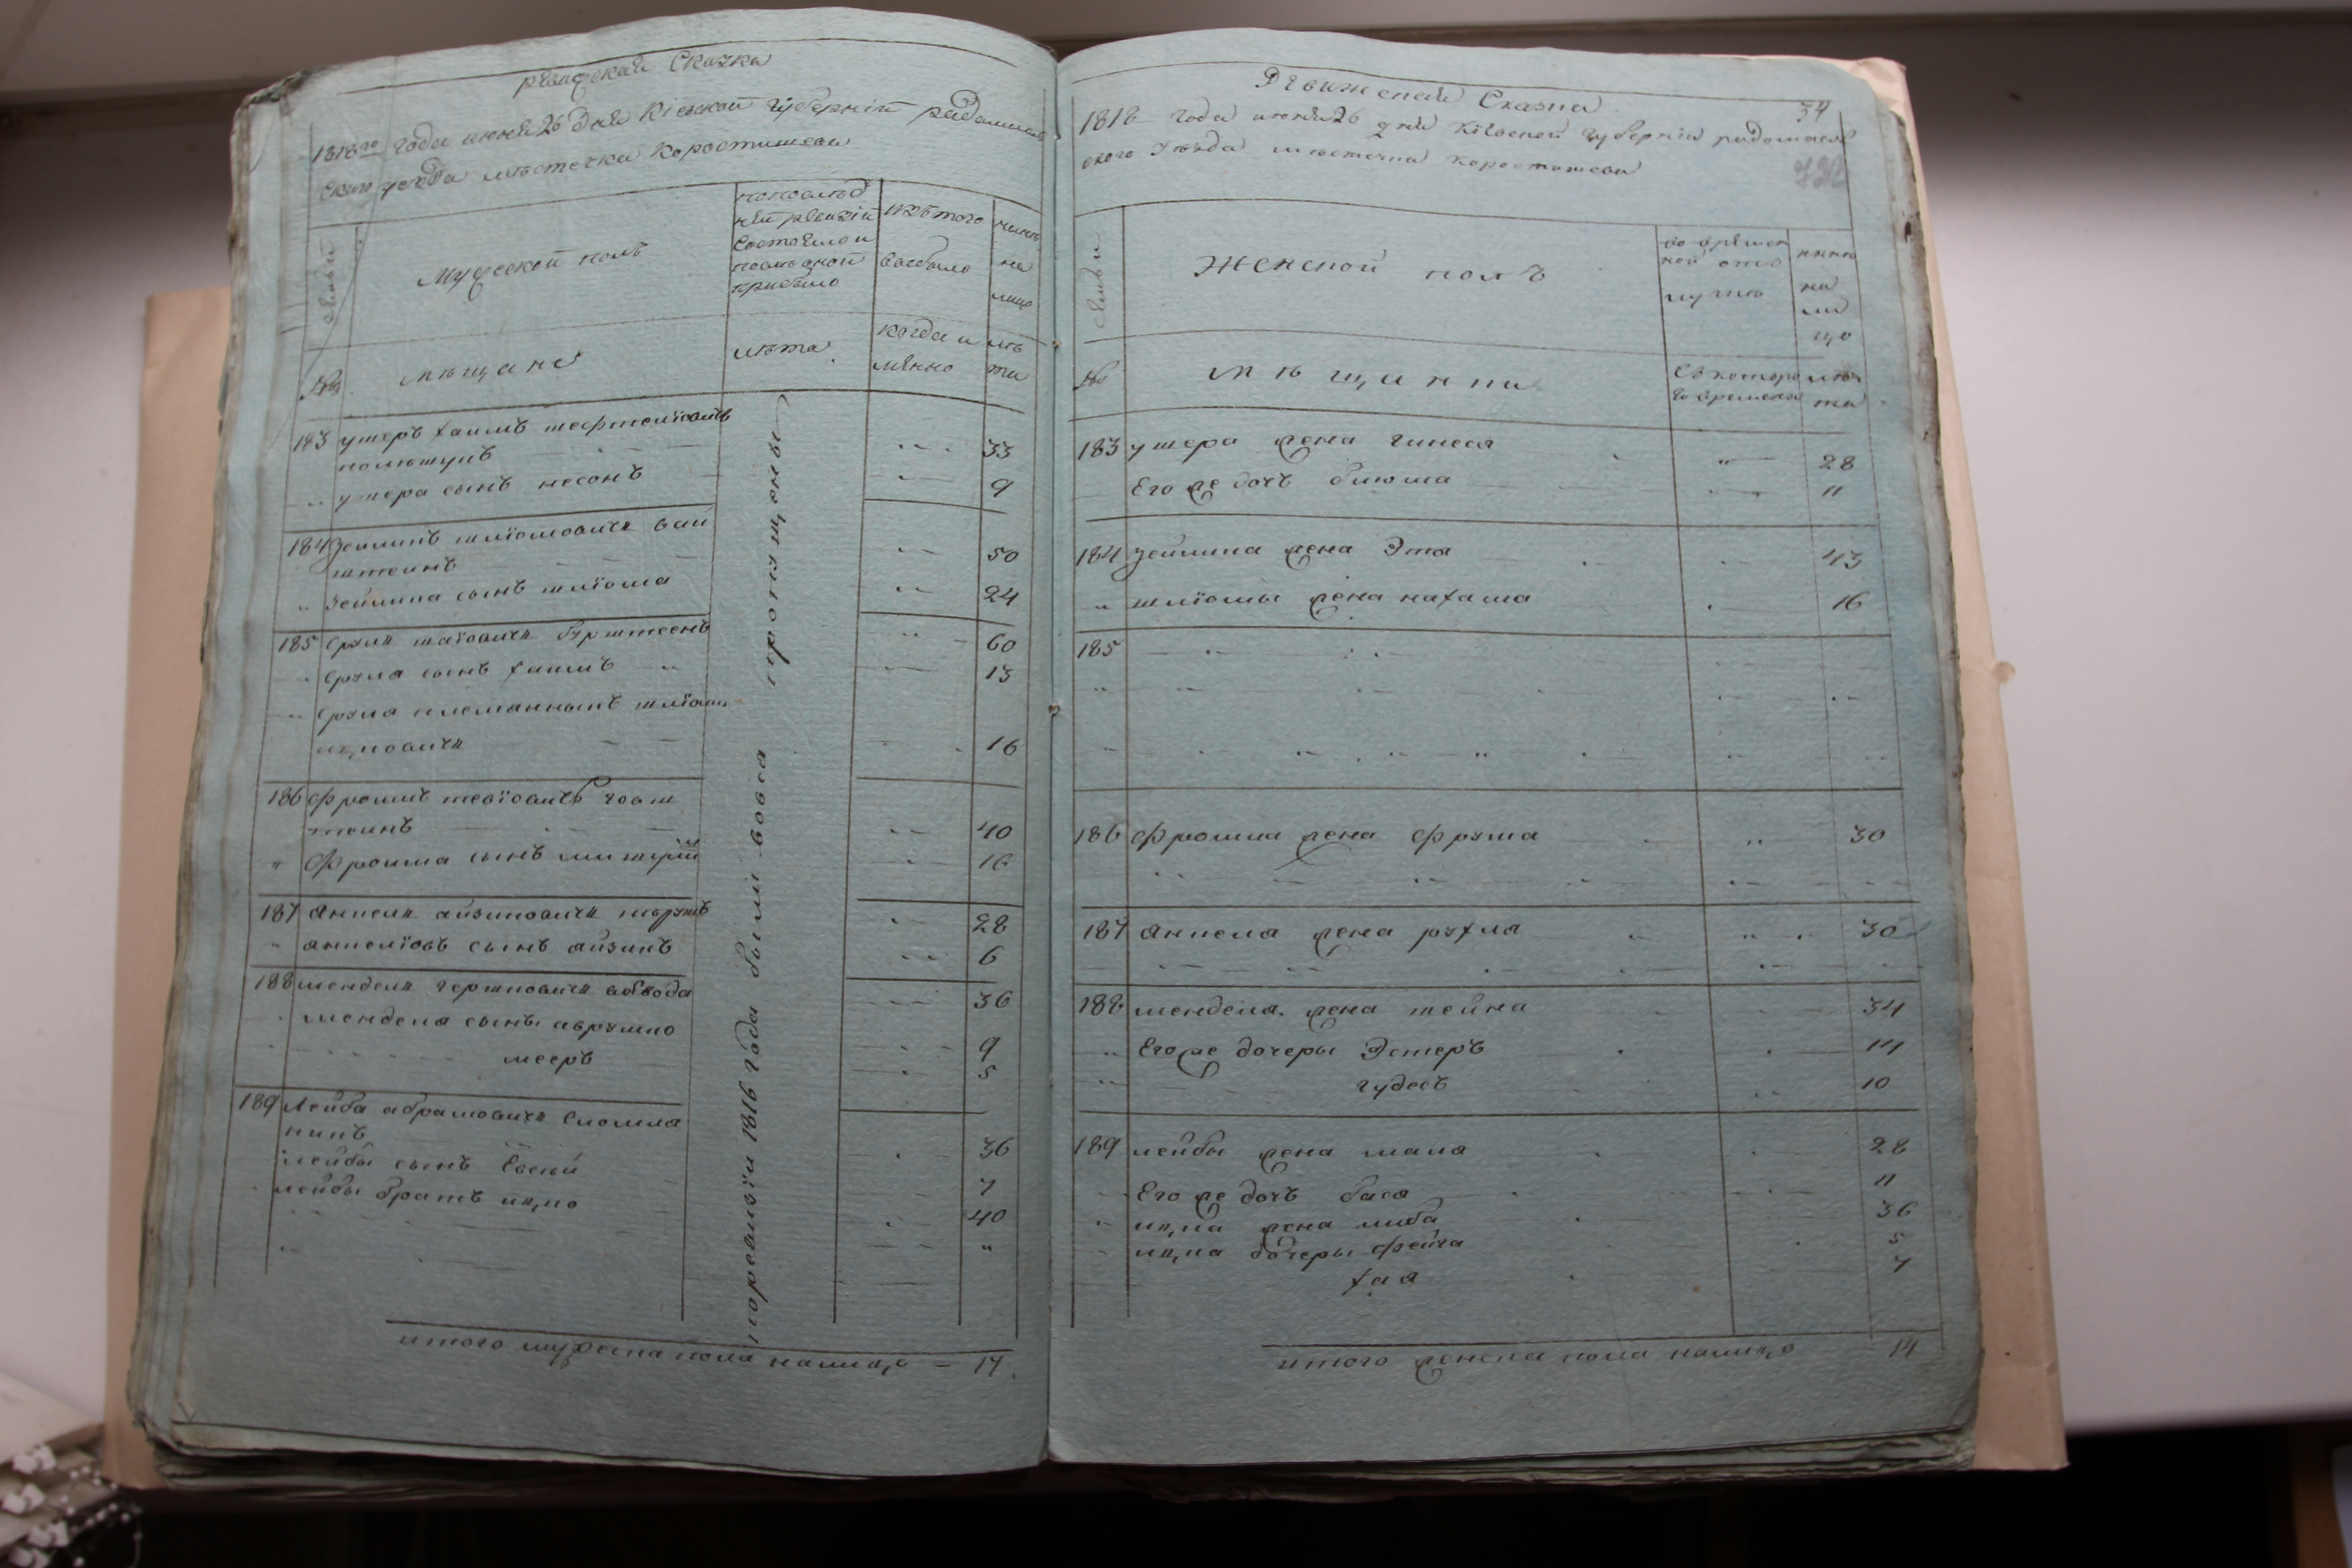 ревизская Сказка
1818го года июня 26 дня Кіевской губерніи радомысль
скаго уезда местечка Коростишева
семьи
Мужеской полъ
по последней ревизіи состояло и после оной прибыло
изъ того выбыло
ныне на лицо
№
мещане
лета
когда имянно
лета
по ревизіи 1816 года были вовса пропущены
183 ушеръ хаимъ
33
ушера сынъ несонъ 9
184 зейликъ шліомовичъ вай
штеинъ 50
зейлика сынъ шліома 24
185 сруль маіовичъ бурштеенъ 60
сруля сынъ хаимъ 13
сруля племянникъ шліома
ицковичъ 16
186 фроимъ тевіовичъ говш
теинъ 40
фроима сынъ 16
187 анчель айзиковичъ 28
анчеліовъ сынъ айзикъ 6
188 мендель гершковичъ 36
менделя сыны аврумко 9
мееръ 5
189 лейба абрамовичъ смоля
никъ 36
лейбы сынъ Евсей 7
лейбы братъ ицко 40
итого мужеска пола налицо — 17
Ревижская Сказка
34
1818 года июня 26 дня Кіевской губерніи радомысль
ского уезда местечка коростишева
семьи
Женской полъ
во временной отлучке
ныне на лицо
№
мещанки
съ которого времени
лета
183 ушера жена гинеся 28
Его же дочь блюма 11
184 зейлика жена Эта 43
шліомы жена нахама 16
185
186 фроима жена фрума 30
187 анчеля жена рухля 30
188 менделя жена шейна 34
Его же дочеры Эстеръ 14
гудесъ 10
189 лейбы жена мала 28
Его же дочь бася 11
ицка жена либа 36
ицка дочеры фейга 5
хая 7
итого женска пола налицо 14